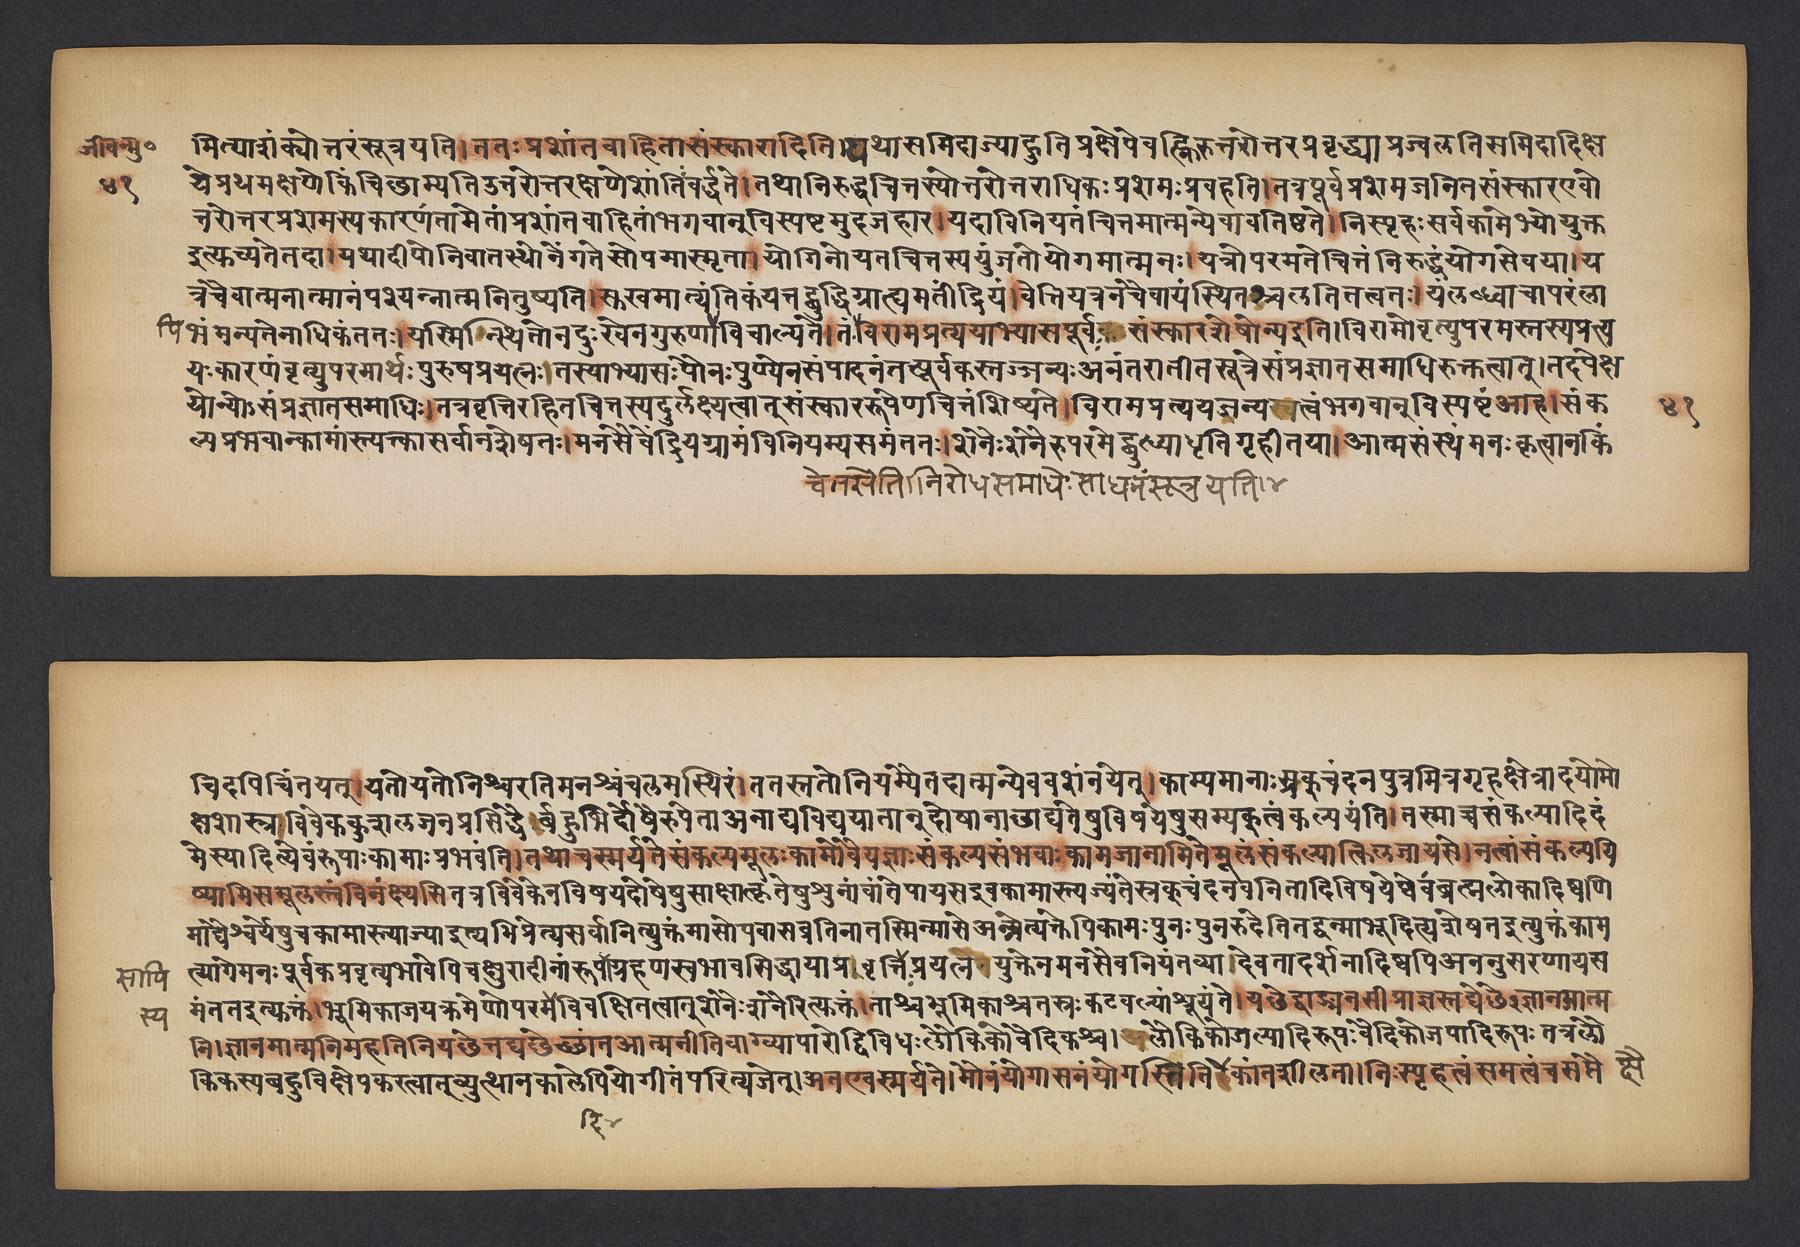 जीवन्मु॰
४१
मित्याशंक्योत्तरंसूत्रयति।ततःप्रशांतवाहितासंस्कारादिति।यथासमिदाज्याहुतिप्रक्षेपेवह्निरुत्तरोत्तरप्रवृद्ध्याप्रज्वलतिसमिदादिक्ष
येप्रथमक्षणेकिंचिच्छाम्यतिउत्तरोत्तरक्षणेशांतिर्वर्द्धते।तथानिरुद्धचित्तस्योत्तरोत्तराधिकःप्रशमःप्रवहति।तत्रपूर्वप्रशमजनितसंस्कारएवो
त्तरोत्तरप्रशमस्यकारणंतामेतांप्रशांतवाहितांभगवानुविस्पष्टमुदजहार।यदाविनियतंचित्तमात्मन्येवावतिष्ठते।निस्पृहःसर्वकामेभ्योयुक्त
इत्युच्यतेतदा।यथादीपोनिवातस्थोनेंगतेसोपमास्मृता।योगिनोयतचित्तस्ययुंजतोयोगमात्मनः।यत्रोपरमतेचित्तंनिरुद्धंयोगसेवया।य
त्रचैवात्मनात्मानंपश्यन्नात्मनितुष्यति।सुखमात्यंतिकंयत्तद्बुद्धिग्राह्यमतींद्रियं।वेत्तियत्रनचैवायंस्थितश्चलतितत्वतः।यंलब्ध्वाचापरंला
भंमन्यतेनाधिकंततः।यस्मिन्स्थितोनदुःखेनगुरुणाविचाल्यते।तं।विरामप्रत्ययाभ्यासपूर्वःसंस्कारशेषोन्यइति।विरामोवृत्त्युपरमस्तस्यप्रत्य
पि
यःकारणंवृत्त्युपरमार्थःपुरुषप्रयत्नः।तस्याभ्यासःपौनःपुण्येनसंपादनंतत्पूर्वकस्तज्जन्यःअनंतरातीतसूत्रेसंप्रज्ञातसमाधिरुक्तत्वात्।तदपेक्ष
योन्योऽसंप्रज्ञातसमाधिः।तत्रवृत्तिरहितचित्तस्यदुर्लक्ष्यत्वात्संस्काररूपेणचित्तंशिष्यते।विरामप्रत्ययजन्यत्वंभगवानुविस्पष्टंआह।संक
४१
ल्पप्रभवान्कामांस्त्यक्त्कासर्वानशेषतः।मनसैवेंद्रियग्रामंविनियम्यसमंततः।शनैःशनैरुपरमेद्बुध्याधृतिगृहीतया।आत्मसंस्थंमनःकृत्वानकिं
वेतसेति।निरोधसमाधेःसाधनंसूत्रयति।४
चिदपिचिंतयत्।यतोयतोनिश्चरतिमनश्चंचलमस्थिरं।ततस्ततोनियम्यैतदात्मन्येववशंनयेत्।काम्यमानाःस्रक्चंदनपुत्रमित्रगृहक्षेत्रादयोमो
क्षशास्त्रविवेककुशलजनप्रसिद्धैर्बहुभिर्दोषैरुपेताअनाद्यविद्ययातानुदोषानाछाद्यतेषुविषयेषुसम्यक्त्वंकल्पयंति।तस्माच्चसंकल्पादिदं
मेस्यादित्येवंरूपाःकामाःप्रभवंति।तथाचस्मर्यतेसंकल्पमूलःकामोवैयज्ञाःसंकल्पसंभवाःकामजानामितेमूलंसंकल्पात्किलजायसे।नत्वांसंकल्पयि
ष्यामिसमूलस्त्वंविनंक्ष्यसितत्रविवेकेनविषयदोषेषुसाक्षात्कृतेषुशुनांवांतेपायसइवकामास्त्यज्यंतेस्रक्चंदनवनितादिविषयेष्वेवंब्रह्मलोकादिष्वणि
माद्यैश्वर्येषुचकामास्त्याज्याइत्यभिप्रेत्यसर्वानित्युक्तंमासोपवासव्रतिनातस्मिन्मासेअन्नेत्यक्तेपिकामःपुनःपुनरुदेतितद्वन्माभूदित्यशेषतइत्युक्तंकाम
त्यागेमनःपूर्वकप्रवृत्यभावेपिचक्षुरादीनांरूपग्रहणस्वभावसिद्धायाप्रवृत्तिःप्रयत्नयुक्तेनमनसैवनियंतव्या।देवतादर्शनादिष्वपिअननुसरणायस
सापि
मंततइत्युक्तं।भूमिकाजयक्रमेणोपरमेविवक्षितत्वात्शनैःशनैरित्युक्तं।ताश्चभूमिकाश्चतस्रःकठवल्यांश्रूयंते।यछेद्वाङ्मनसीप्राज्ञस्तद्यछेज्ज्ञानआत्म
स्य
नि।ज्ञानमात्मनिमहतिनियछेत्तद्यछेच्छांतआत्मनीतिवाग्व्यापारोद्विविधःलौकिकोवैदिकश्च।लौकिकोजल्पादिरूपःवैदिकोजपादिरूपःतत्रलौ
किकस्यबहुविक्षेपकरत्वात्व्युत्थानकालेपियोगीतंपरित्यजेत्।अतएवस्मर्यते।मौनंयोगासनंयोगस्तितिकांतशीलता।निःस्पृहत्वंसमत्वंचसप्तै